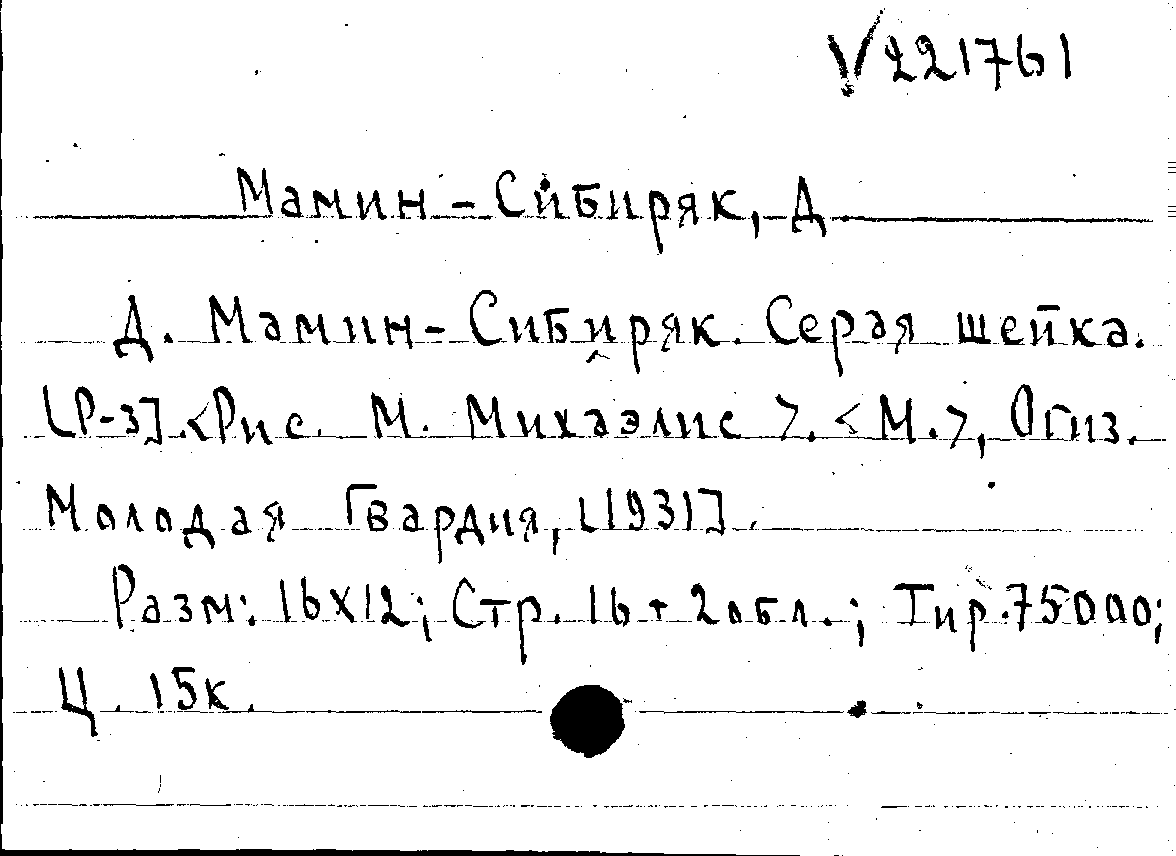 V221761
Мамин-Сибиряк, Д
Д. Мамин-Сибиряк. Серая шейка.
[Р-з].<Рис. М. Михаэлис>. <М.>, Огиз.
Молодая Гвардия, [1931].
Разм: 16х12; Стр. 16+2обл.; Тир.75000;
Ц. 15к.